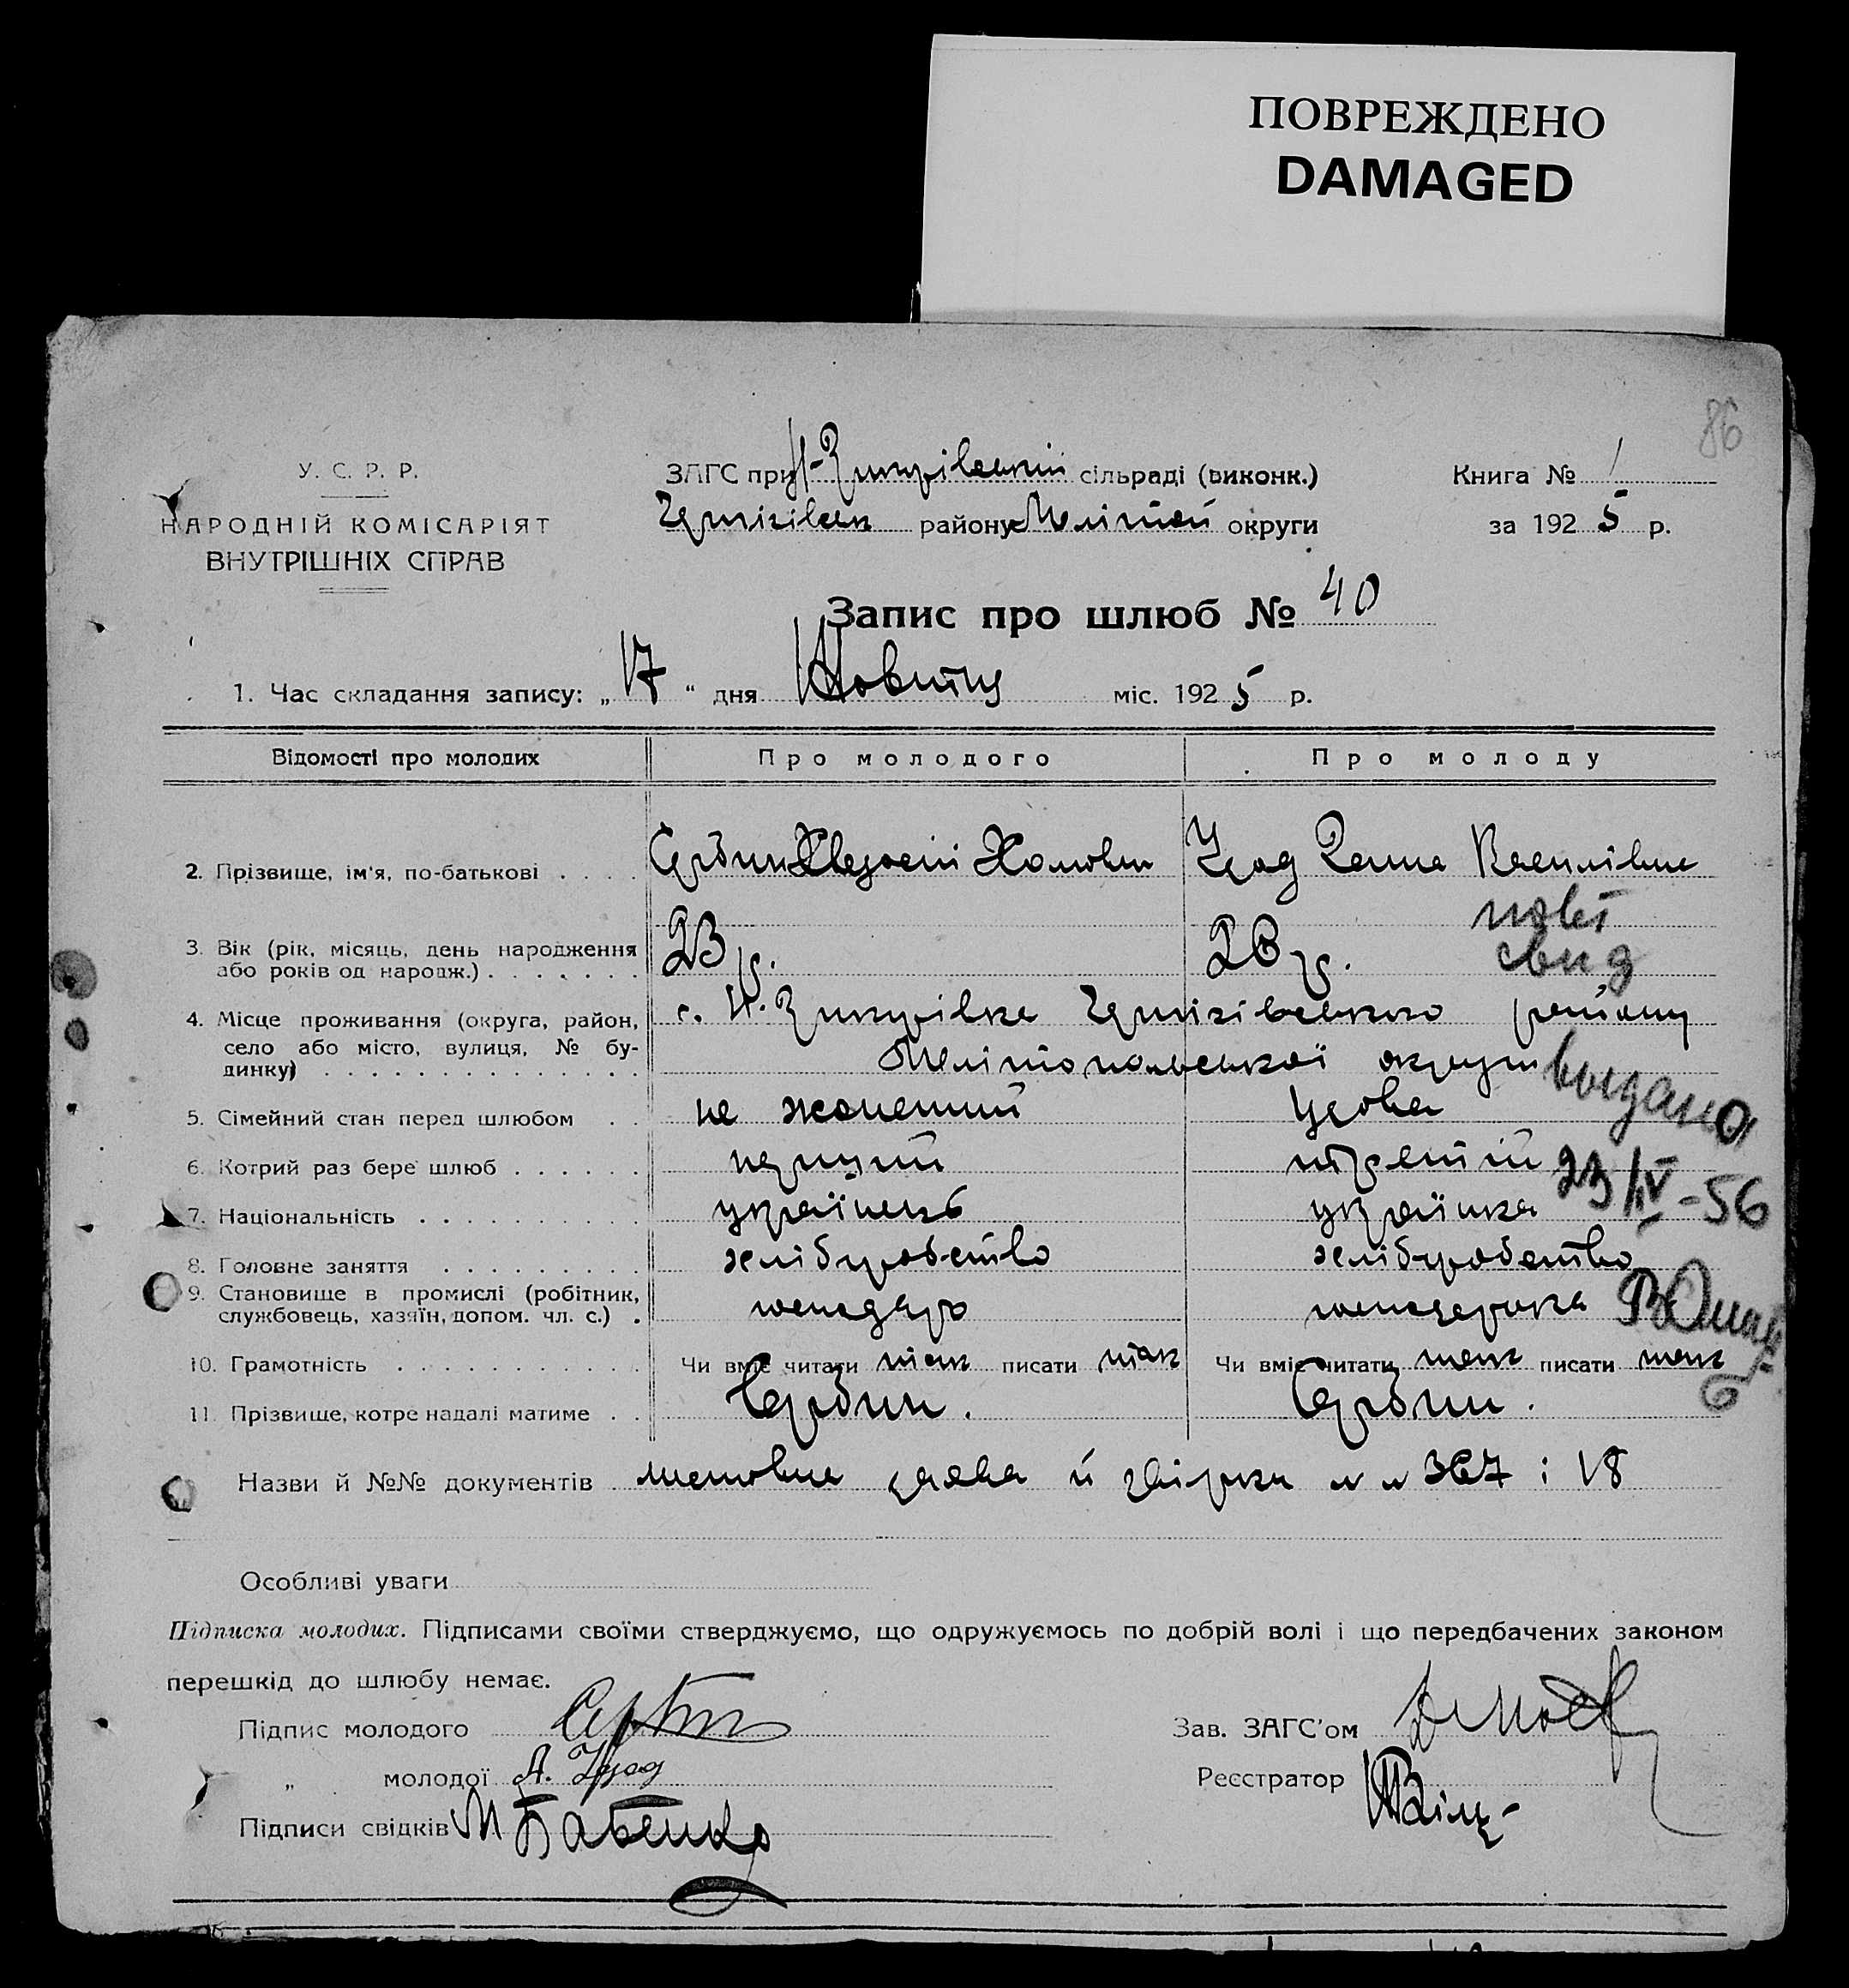 ПОВРЕЖДЕНО
DAMAGED
86
У. С. Р. Р.
НАРОДНІЙ КОМІСАРІЯТ
ВНУТРІШНІХ СПРАВ
ЗАГС при сільраді (виконк.)
району округи
Книга № 1
за 1925 р.
Запис про шлюб № 40
1. Час складання запису: „17“ дня Жовтня міс. 1925 р.
Відомості про молодих Про молодого Про молоду
2. Прізвище, ім'я, по-батькові . . . . Василівна
3. Вік (рік, місяць, день народження
або років од народж.) . . . . . . . 23 р. 26 р.
4. Місце проживання (округа, район,
село або місто, вулиця, № бу-
динку) . . . . . . . . . . . . . . с. району
Мелітопольської округи
5. Сімейний стан перед шлюбом . . не жонатий удова
6. Котрий раз бере шлюб . . . . . . перший третій
7. Національність . . . . . . . . . . українець українка
8. Головне заняття . . . . . . . . . хліборобство хліборобство
9. Становище в промислі (робітник,
службовець, хазяїн, допом. чл. с.) .
10. Грамотність . . . . . . . . . . . Чи вміє читати так писати так Чи вміє читати так писати так
11. Прізвище, котре надалі матиме . . Сербин. Сербин.
выдано
23/IV-56
Назви й №№ документів заява й 367 і 18
Особливі уваги
Підписка молодих. Підписами своїми стверджуємо, що одружуємось по добрій волі і що передбачених законом
перешкід до шлюбу немає.
Підпис молодого
Зав. ЗАГС'ом
„ молодої
Реєстратор
Підписи свідків М Бабенко